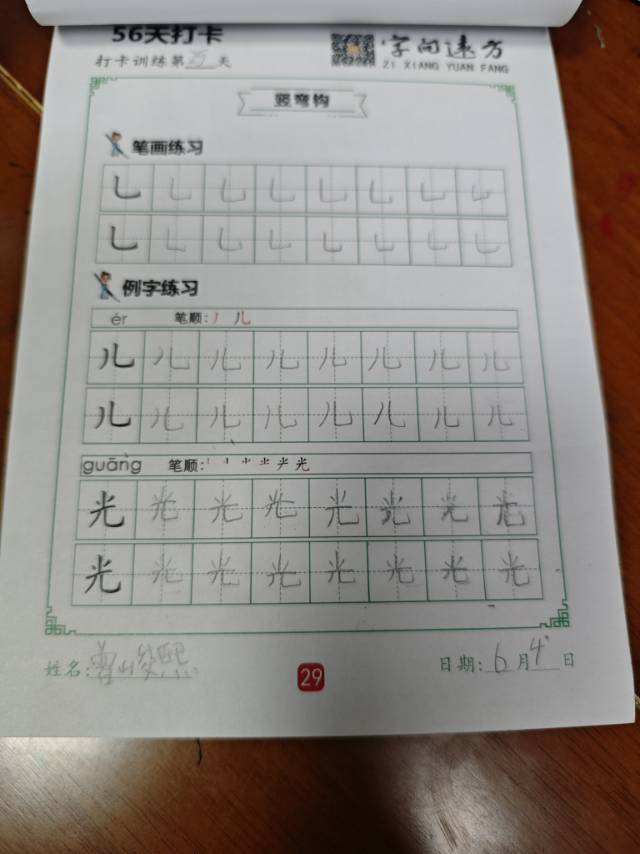 56天打卡
字向速方
打卡训练第25天
ZI XIANG YUAN FANG
竖弯钩
笔画练习
乚 乚 乚 乚 乚 乚 乚 乚
乚 乚 乚 乚 乚 乚 乚 乚
例字练习
ér 笔顺: 丿 儿
儿 儿 儿 儿 儿 儿 儿 儿
儿 儿 儿 儿 儿 儿 儿 儿
guāng 笔顺:
光 光 光 光 光 光 光 光
光 光 光 光 光 光 光 光
姓名: 熙
29
日期: 6月4日